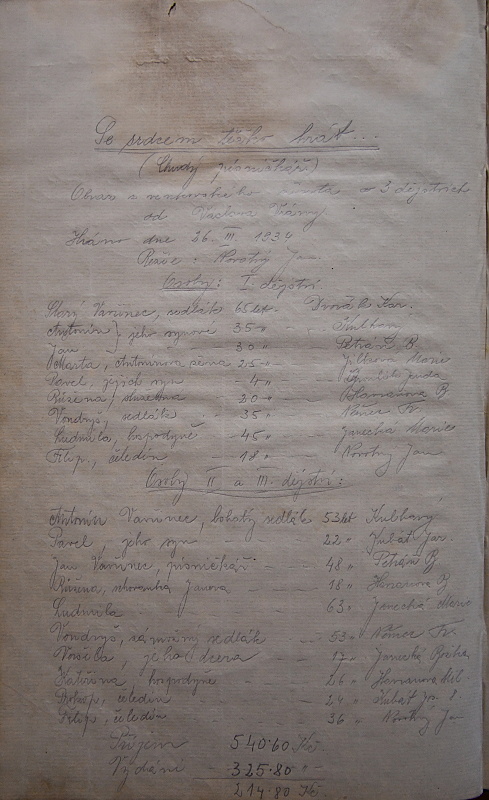 Se srdcem těžko hrát...
(Chudý písničkář)
Obraz z venkovského života o 3 dějstvích
od Václava Vrány
Hráno dne 26. III. 1934
Režie: Novotný Jan
Osoby: I. dějství.
Starý Vavřinec, sedlák 65 let Dvořák Kar.
Antonín } jeho synové 35 " Kulhavý
Jan 30 " Petráň B
Marta, Antonínova žena 25 " Marie
Pavel, jejich syn 4 "
Růžena, 20 " B
Vondryš, sedlák 35 " Němec Fr.
Ludmila, hospodyně 45 " Janecká Marie
Filip, čeledín 18 " Novotný Jan
Osoby II a III. dějství:
Antonín Vavřinec, bohatý sedlák 53 let Kulhavý
Pavel, jeho syn 22 " Kubát Jar.
Jan Vavřinec, písničkář 48 " Petráň B
Růžena, schovanka Janova 18 " B
Ludmila 63 " Janecká Marie
Vondryš, sedlák 53 " Němec Fr.
jeho dcera 17 " Janecká
Kateřina, hospodyně 26 "
Prokop, čeledín 24 " Kubát
Filip, čeledín 36 " Novotný Jan
Příjem 540.60 Kč
Vydání 325.80 "
214.80 Kč